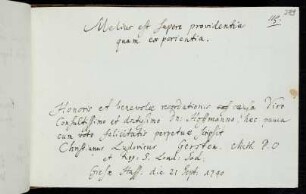 Melius est sapere providentia
quam experientia.
Honoris et benevolae recordationis causa Viro
Consultissimo et doctissimo Dn. Hoffmanno haec pauca
cum voto felicitatis perpetuae scripsit
Christianus Ludovicus Gersten. Math. P. O
et Reg. S. Lond. Sod.
Giesae Hass. die 21 Sept. 1740